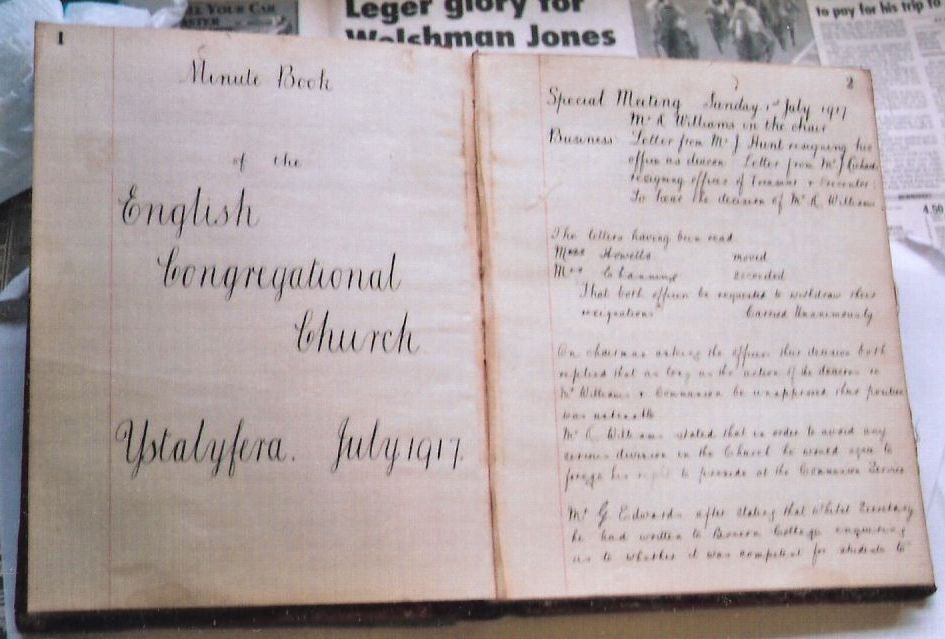 Leger glory for
Welshman Jones
to pay for his trip to
1
Minute Book
of the
English
Congregational
Church
Ystalyfera. July 1917.
2
Special Meeting Sunday 1st July 1917
Mr R Williams in the chair
Business: Letter from Mr J Hunt resigning his
office as deacon Letter from Mr J
resigning offices of Treasurer +
To hear the decision of Mr R Williams
The letters having been read
Howells moved
Channing seconded
That both officers be requested to withdraw their
resignations Carried Unanimously
On chairman asking the officers their decision both
replied that as long as the action of the deacons re
Mr Williams + Communion be unappressed their position
was untenable
Mr R Williams stated that in order to avoid any
serious division in the Church he would agree to
forego his right to preside at the Communion Service
Mr G Edwards after stating that whilst Secretary
he had written to Brecon College enquiring
as to whether it was competent for students to